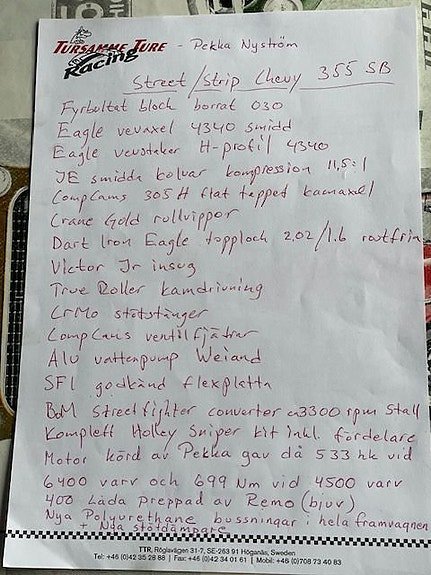 TURSAMME TURE
Racing
- Pekka Nyström
Street/Strip Chevy 355 SB
Fyrbultat block borrat 030
Eagle vevaxel 4340 smidd
Eagle vevstaker H-profil 4340
JE smidda kolvar kompression 11,5:1
CompCams 305H flat tapped kamaxel
Crane Gold rullvippor
Dart Iron Eagle topplock 2,02/1.6 rostfria
Victor Jr insug
True Roller kamdrivning
CrMo stötstänger
CompCams ventilfjädrar
Alu vattenpump Weiand
SFI godkänd flexplatta
B&M Streetfighter converter ca3300 rpm Stall
Komplett Holley Sniper kit inkl. fördelare
Motor körd av Pekka gav då 533 hk vid
6400 varv och 699 Nm vid 4500 varv
400 Låda preppad av Remo (bjuv)
Nya Polyurethane bussningar i hela framvagnen
+ Nya stötdämpare
TTR, Röglavägen 31-7, SE-263 91 Höganäs, Sweden
Tel: +46 (0)42 35 28 88 | Fax: +46 (0)42 34 01 61 | Mobil: +46 (0)708 73 40 83